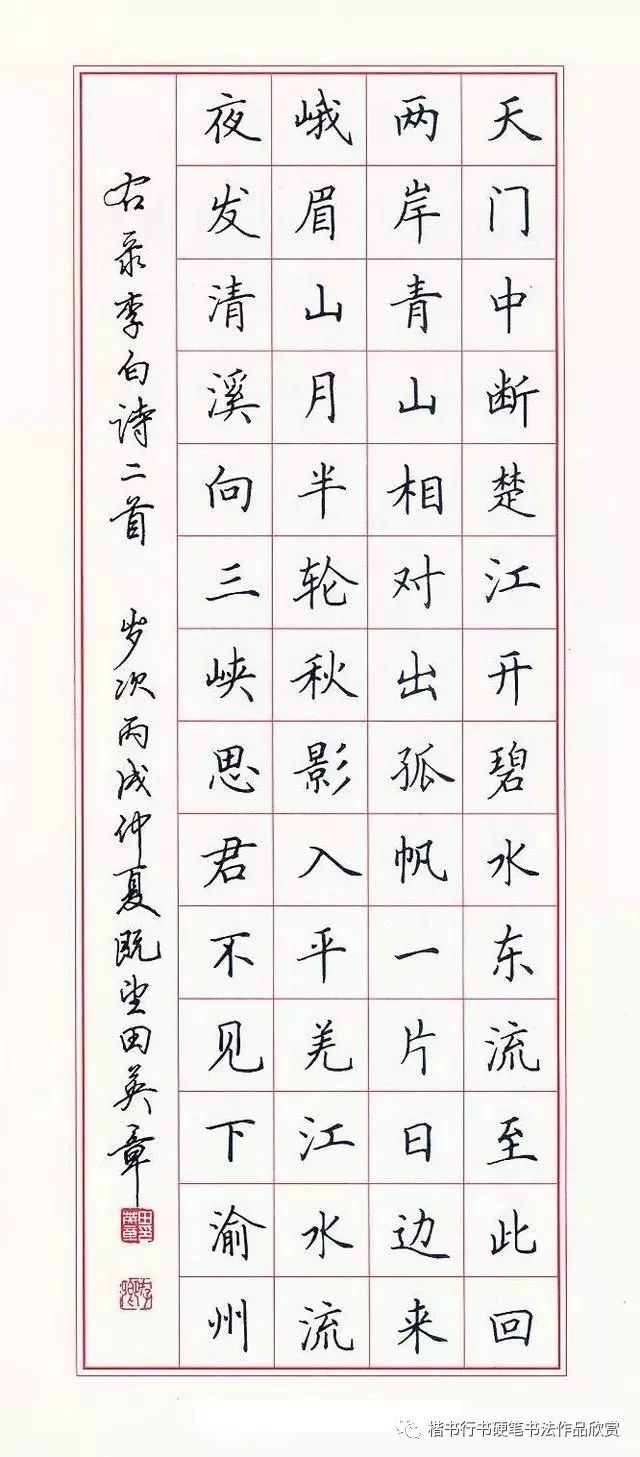 天门中断楚江开碧水东流至此回
两岸青山相对出孤帆一片日边来
峨眉山月半轮秋影入平羌江水流
夜发清溪向三峡思君不见下渝州
右录李白诗二首 岁次丙戌仲夏既望田英章
楷书行书硬笔书法作品欣赏